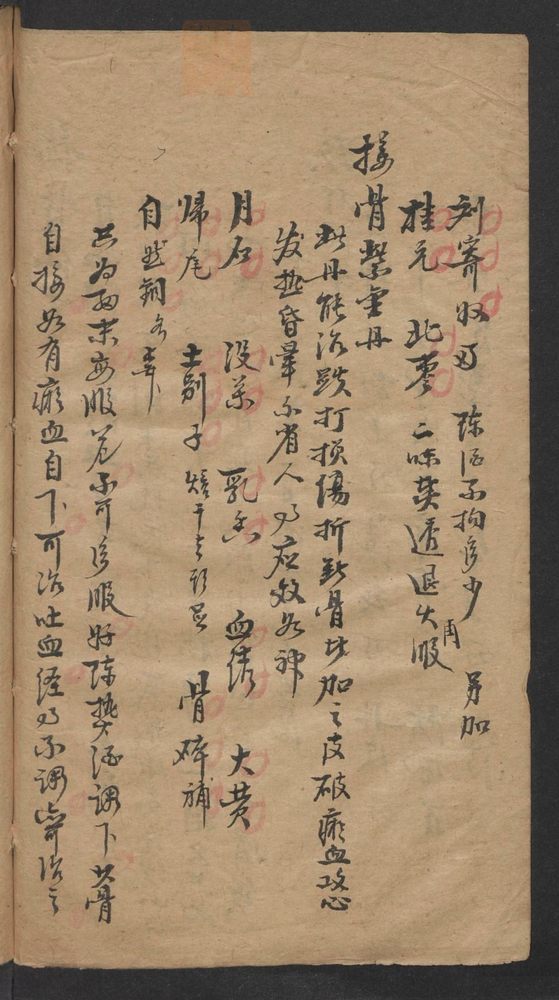 刘寄奴 陈酒不拘多少 另加
桂元 北蔘 二味煲透退火再服
接骨紫金丹
此丹能治跌打损傷折断骨 加之皮破瘀血攻心
发热昏暈不省人 应效如神
月石 没药 乳香 血结 大黄
归尾 土鳖子 焙干去头足 骨碎補
自然铜 各 下
共为细末 每服 不可多服 好陈热酒调下 其骨
自接 如有瘀血自下 可治吐血 经 不调 治之